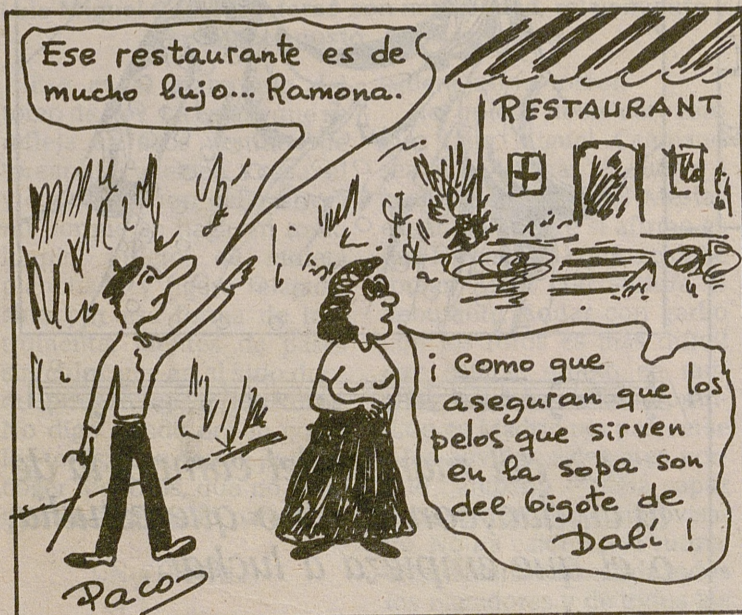 Ese restaurante es de
mucho lujo... Ramona.
RESTAURANT
¡Como que
aseguran que los
pelos que sirven
en la sopa son
del bigote de
Dalí!
Paco